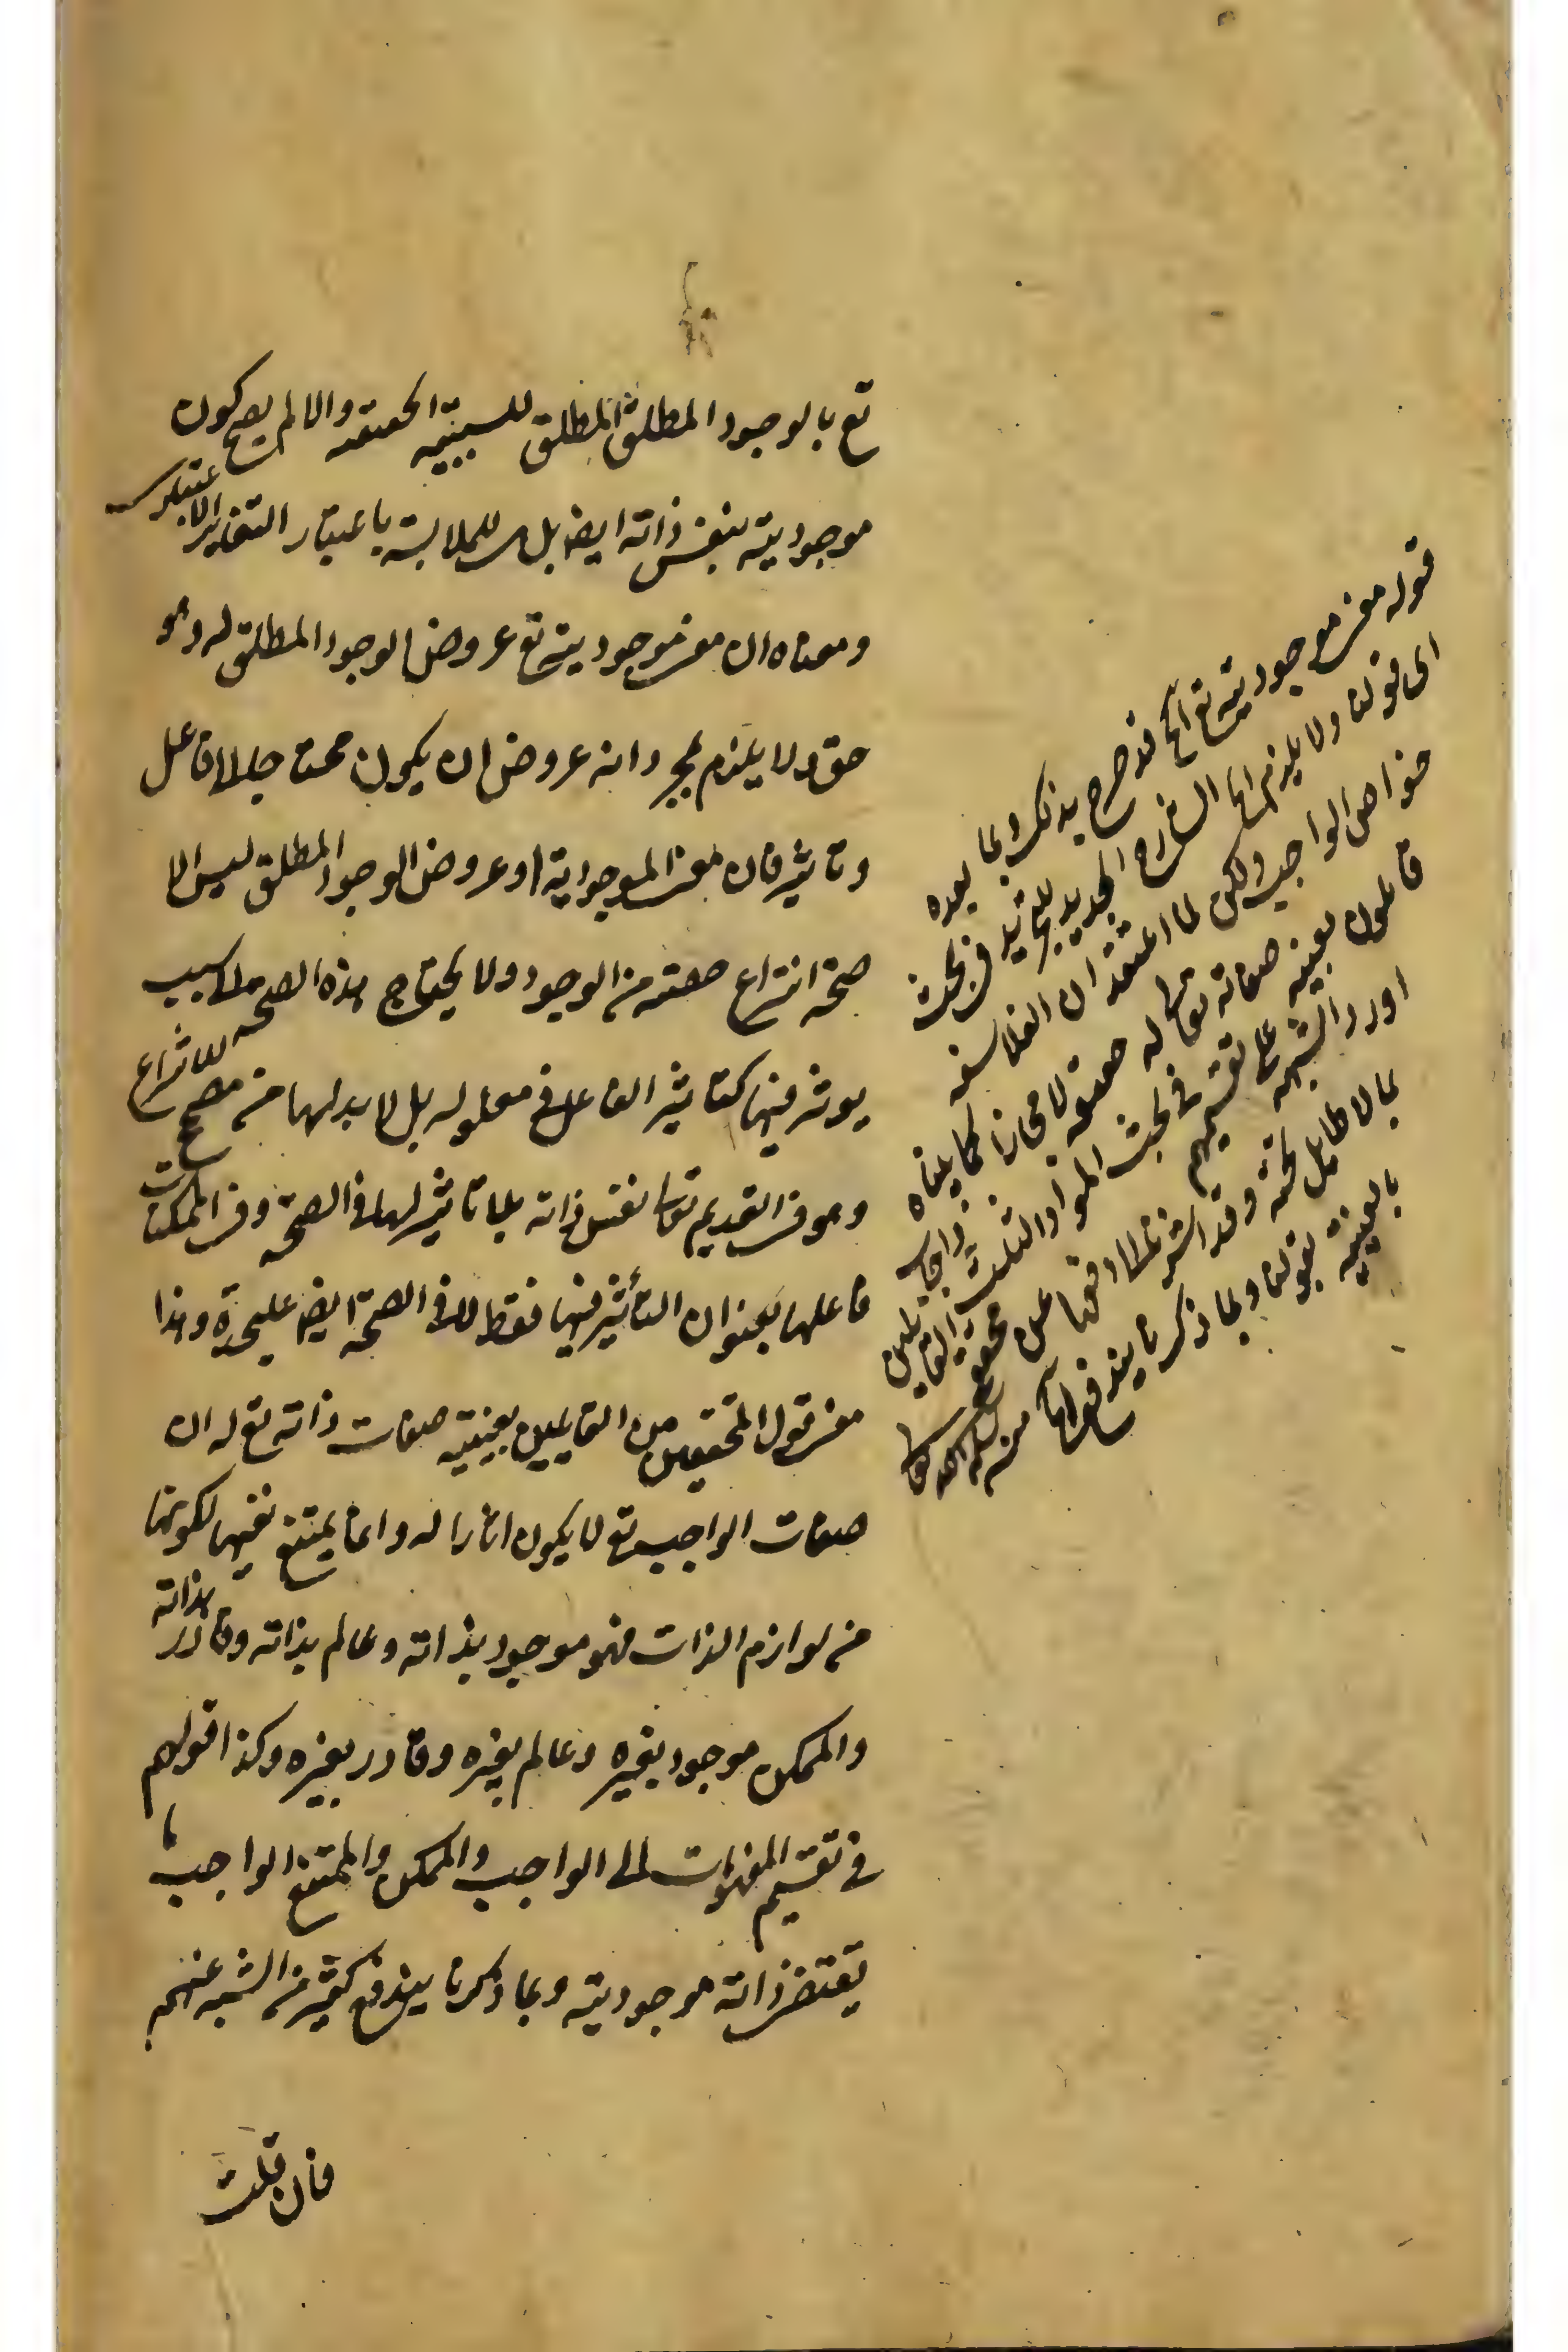 تع بالوجود المطلق المطلق للسببية الحقيقه والا لم يصح كون
موجوديته بنفس ذاته ايضا بل للملابسة باعتبار التغاير الاعتبارى
ومعناه ان معنى موجوديته تع عروض الوجود المطلق له وهو
حق ولا يلزم بمجرد انه عروض ان يكون محتاجا الى فاعل
وتاثير فان معنى الموجودية او عروض الوجود المطلق ليس الا
صحة انتزاع صفته من الوجود ولا يحتاج هذه الصحة الى سبب
يوثر فيها كتاثير الفاعل فى معلوله بل لا بد لها من مصحح للانتزاع
وهو فى القديم تعالى نفس ذاته بلا تاثير لها فى الصحة وفى الممكنات
فاعلها بعنوان التأثير فيها فقط لا فى الصحة ايضا عليحدة وهذا
معنى قول المحققين من القايلين بعينية صفات ذاته تع له ان
صفات الواجب تع لا يكون اثارا له وانما يمتنع نفيها لكونها
من لوازم الذات فهو موجود بذاته وعالم بذاته وقادر بذاته
والممكن موجود بغيره وعالم بغيره وقادر بغيره وكذا قولهم
فى تقسيم المفهومات الى الواجب والممكن والممتنع الواجب ما
يقتضى ذاته موجوديته وبما ذكرنا يندفع كثير من الشبه عنهم
فان قلت
قوله معنى موجوديته تع الخ قد صرح بذلك وبما بعده
الى قولنا ولا يلزم ايضا الشارح الجديد للتجريد فى بحث
خواص الواجب ولكن لما اعتقد ان الفلاسفه
قايلون بعينيه صفاته تعالى له حقيقة لا مجازا كما بيناه
اورد الشبهه على تقسيمهم فى بحث المواد الثلث واجاب
بما لا طايل تحته وقد اشرنا الى دفعها عن محققى القايلين
بالعينية بقولنا وبما ذكرنا يندفع الخ منه سلمه الله تعالى